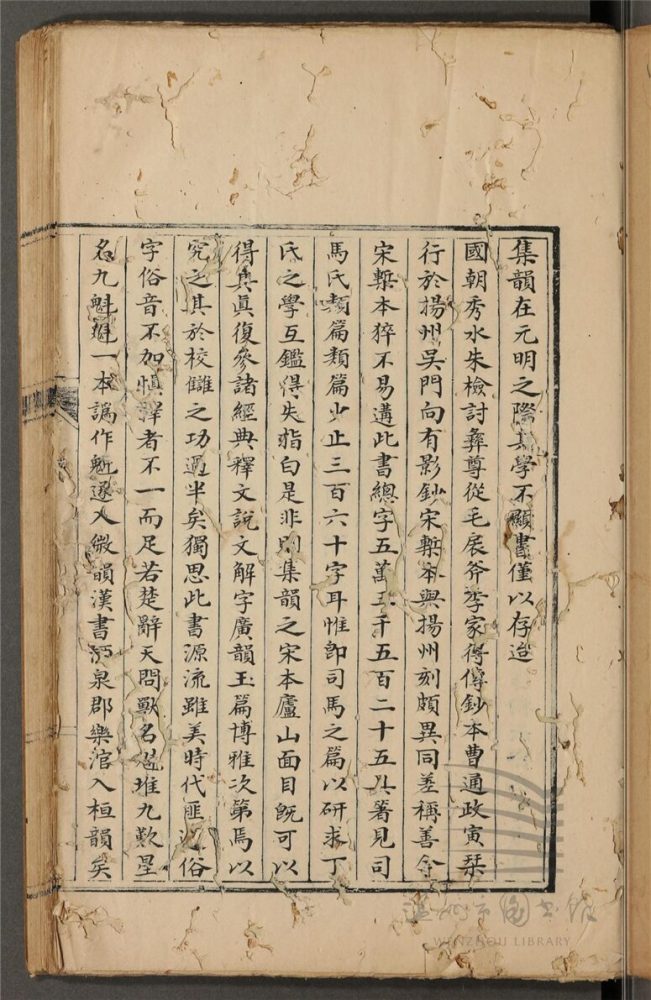 集韻在元明之際其學不顯書僅以存迨
國朝秀水朱檢討彝尊從毛扆斧季家得傳鈔本曹通政寅栞
行於揚州吳門向有影鈔宋槧本與揚州刻頗異同差稱善今
宋槧本猝不易遘此書總字五萬三千五百二十五其著見司
馬氏類篇類篇少止三百六十字耳惟卽司馬之篇以研求丁
氏之學互鑑得失指白是非則集韻之宋本廬山面目旣可以
得其眞復參諸經典釋文說文解字廣韻玉篇博雅次第焉以
究之其於校讎之功過半矣獨思此書源流雖美時代匪 俗
字俗音不加愼擇者不一而足若楚辭天問獸名 堆九歎星
名九魁 一本譌作 遂入微韻漢書酒泉郡樂涫入桓韻矣
溫州市圖書館
WENZHOU LIBRARY